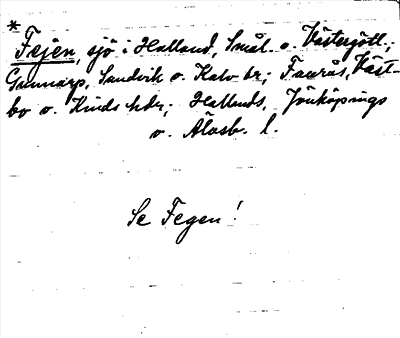 *
Fejen, sjö i Halland, Smål. o. Västergötl.;
Gunnarp, Sandvik o. Kalv sr; Faurås, Väst-
bo o. Kinds hdr; Hallands, Jönköpings
o. Älvsb. l.
Se Fegen!